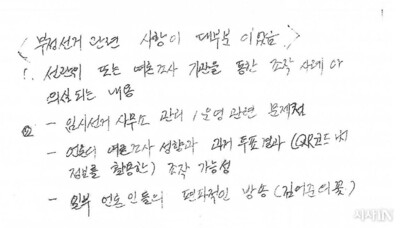 <부정선거 관련 사항이 대부분이었음>
1. 선관위 또는 여론조사 기관을 통한 조작 사례 아
의심되는 내용
- 임시선거 사무소 관리/운영 관련 문제점
- 여론조사 성향과 과거 투표결과(QR코드 내
정보를 활용한) 조작 가능성
- 일부 언론인들의 편파적인 방송(김어준의
시사IN